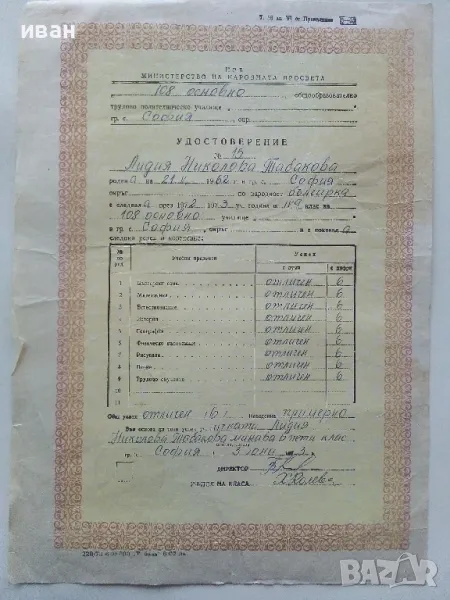 иван
Т. П. им.
НРБ
МИНИСТЕРСТВО НА НАРОДНАТА ПРОСВЕТА
108 основно общообразователно
трудово политехническо училище
гр. с. София, окр.
УДОСТОВЕРЕНИЕ
№ 15
Лидия Николова Табакова
родена на 21. 1962 г. в гр. с. София
окръг по народност българка
е следвала през 1972 / 1973 уч. година в клас на
108 основно училище
в гр. с. София, окръг и е показала
следния успех и поведение:
№ по ред Учебни предмети Успех
с думи с цифри
1 Български език отличен 6
2 Математика отличен 6
3 Естествознание отличен 6
4 История отличен 6
5 География отличен 6
6 Физическо възпитание отличен 6
7 Рисуване отличен 6
8 Пеене отличен 6
9 Трудово обучение отличен 6
10
11
Общ успех отличен /6/ Поведение примерно
Въз основа на този успех ученичката Лидия
Николова Табакова минава в пети клас
гр. с. София 3 юни 3
ДИРЕКТОР:
УЧИТЕЛ НА КЛАСА: Колева
BAZAR.bg